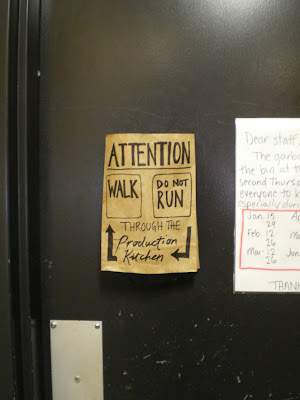 ATTENTION
WALK
DO NOT
RUN
THROUGH THE
Production
Kitchen
Dear staff,
The garba
the bin at th
second Thurs
everyone to k
especially duri
Jan. 15
29
Feb. 12
26
Mar. 12
26
Jun
THAN